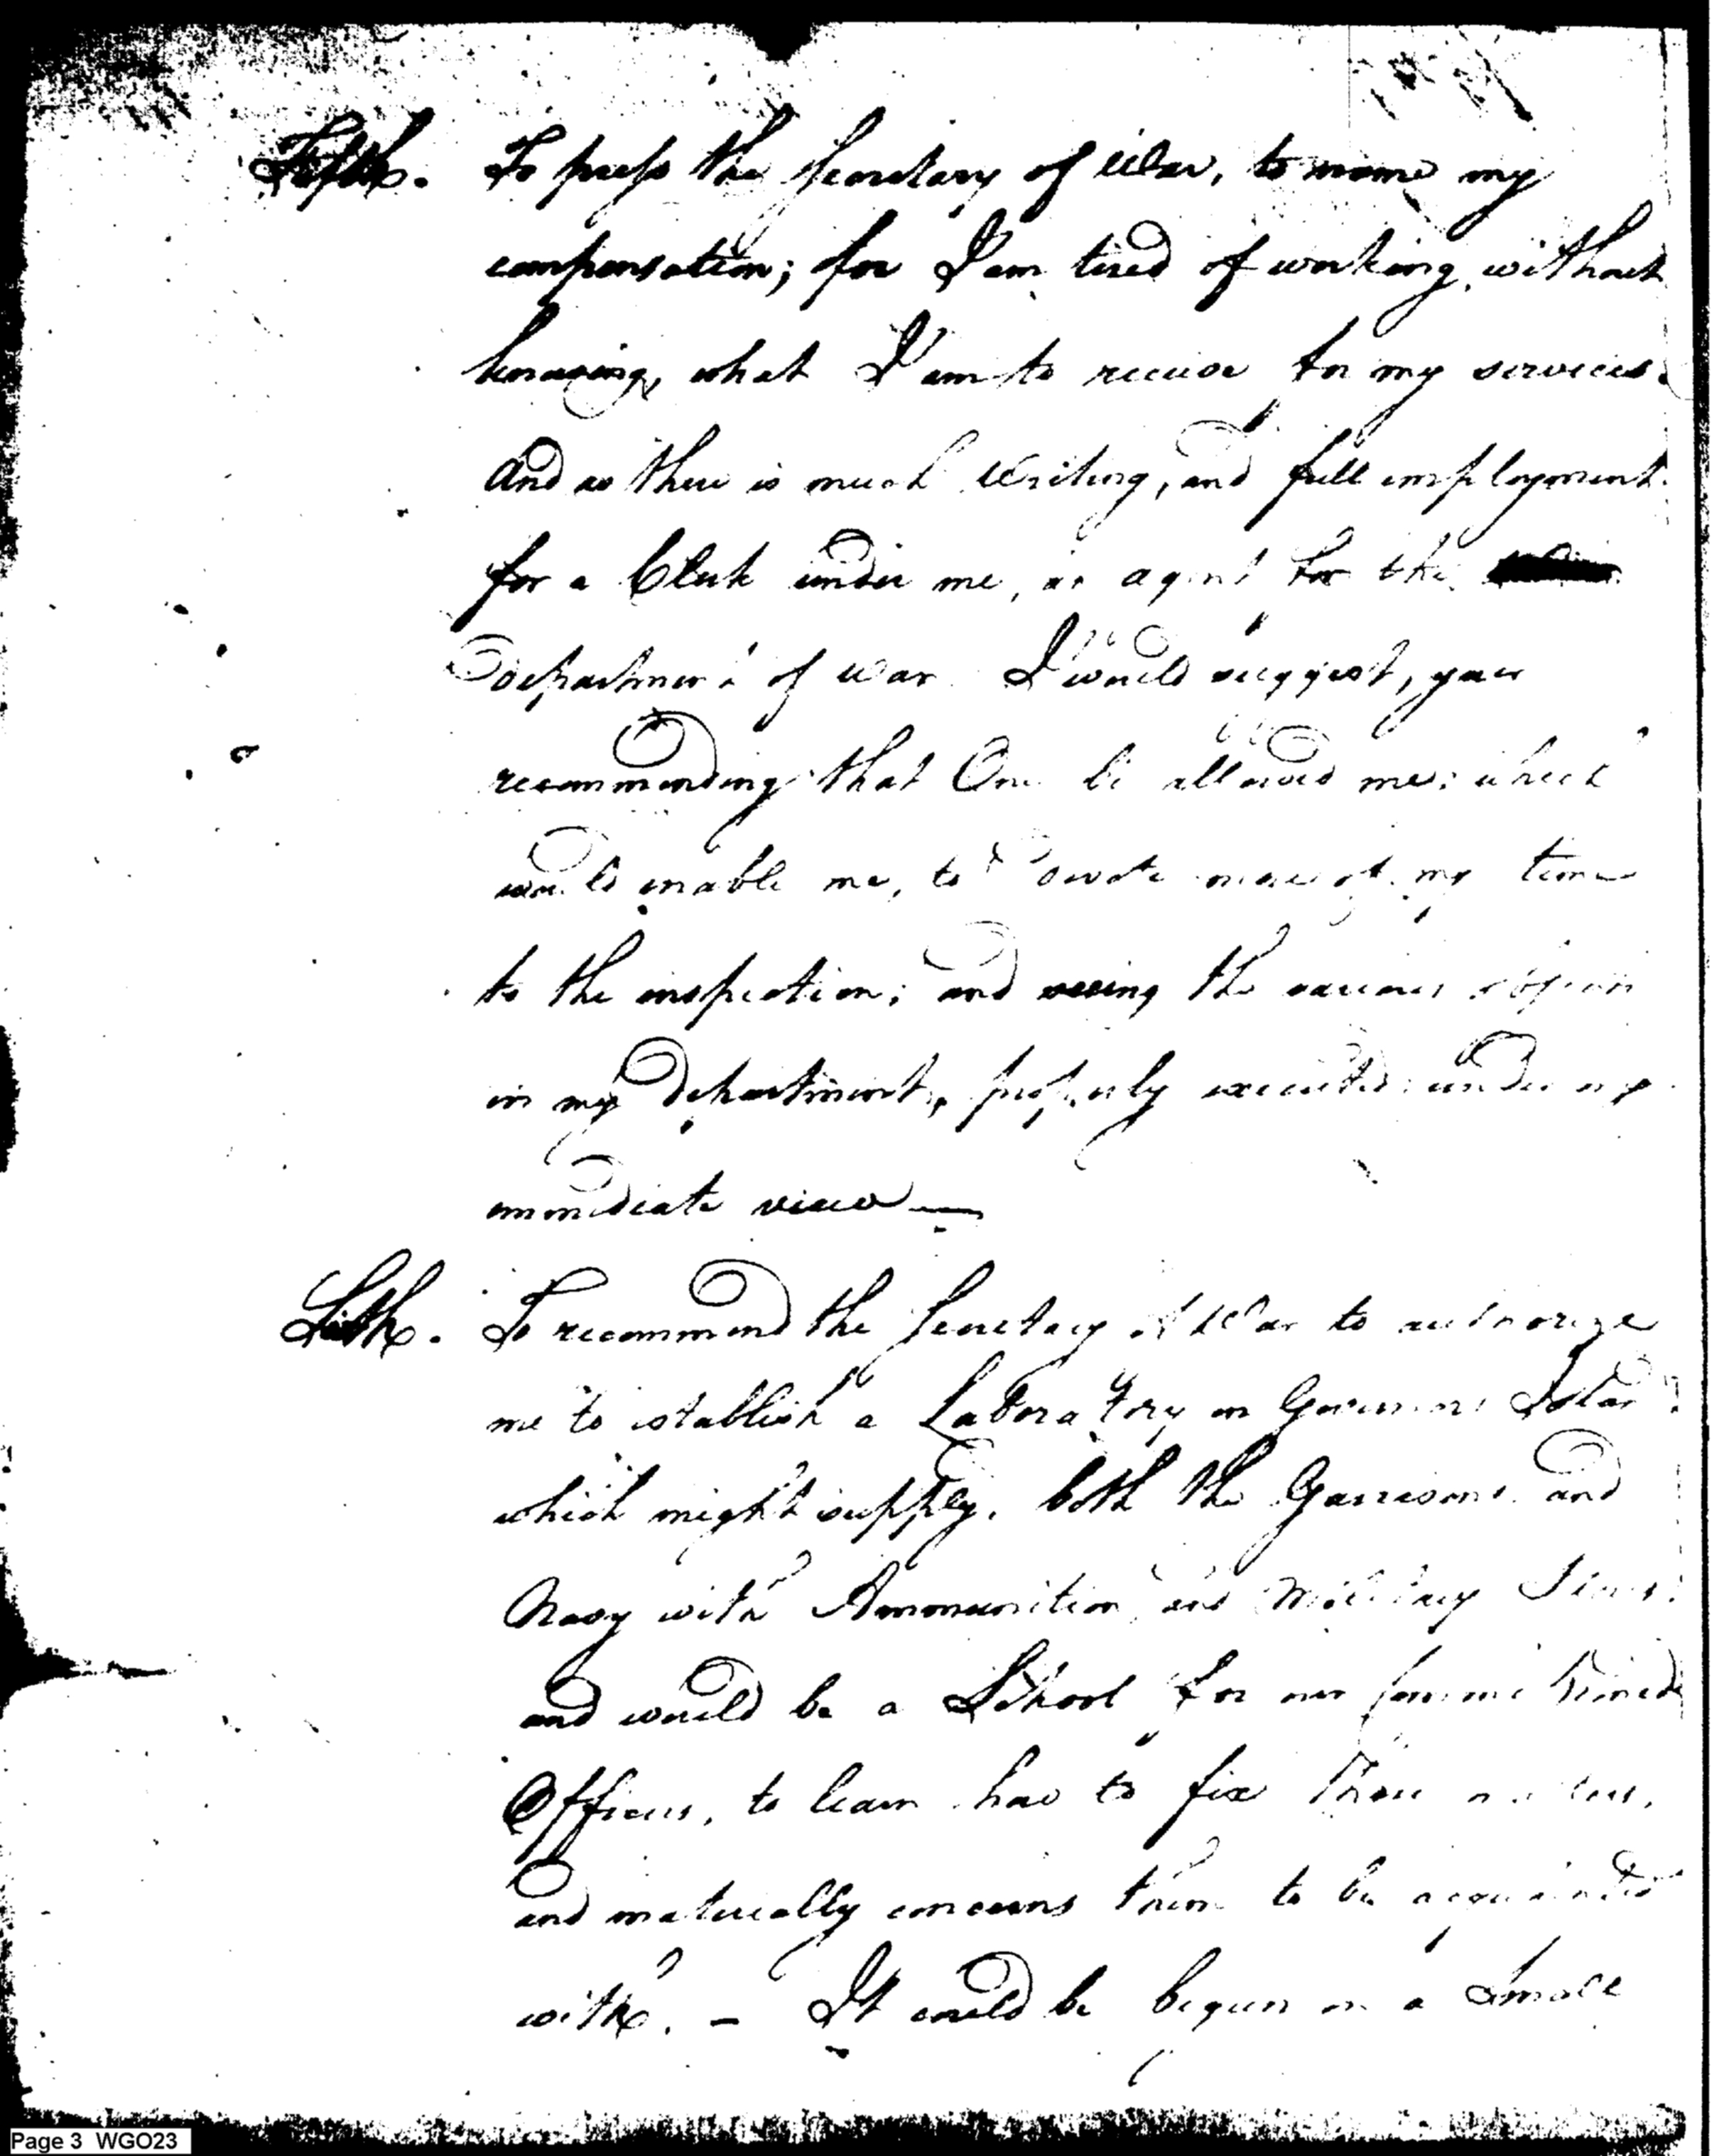 Fifth. To press the Secretary of War, to name my
compensation; for I am tired of working, without
knowing, what I am to receive for my services.
And as there is much Writing, and full employment
for a Clerk under me, as agent for the
Department of War. I would suggest, your
recommending that One be allowed me: which
would enable me, to Devote more of my time
to the inspection; and seeing the various objects
in my Department, properly executed under my
immediate view —
Sixth. To recommend the Secretary of War to authorize
me to establish a Laboratory on Governors Island
which might supply, both the Garrisons and
Navy with Ammunition and Military Stores,
and would be a School for our Commissioned
Officers, to learn how to fix
and materially concerns them to be acquainted
with. — It could be begun on a Small
Page 3 WGO23